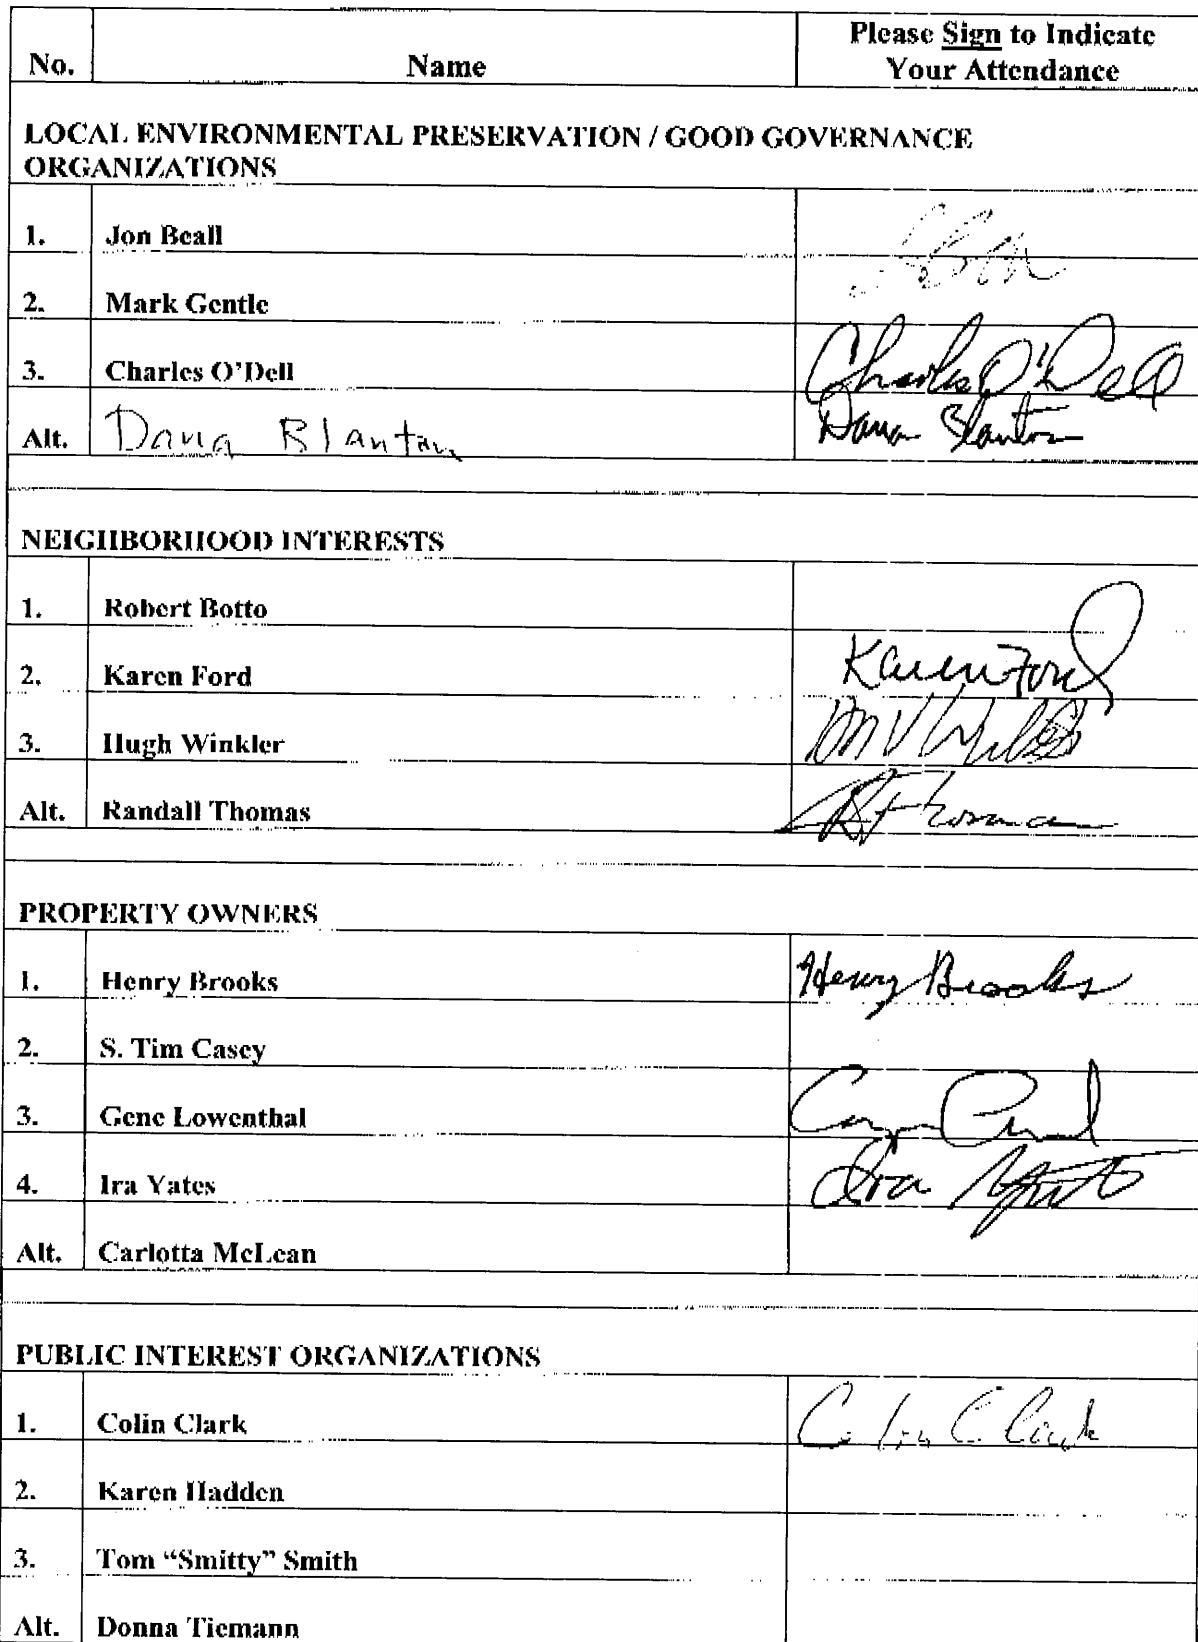 No. Name Please Sign to Indicate
Your Attendance
LOCAL ENVIRONMENTAL PRESERVATION / GOOD GOVERNANCE
ORGANIZATIONS
1. Jon Beall
2. Mark Gentle
3. Charles O'Dell Charles O'Dell
Alt. Dana Blanton Dana Blanton
NEIGHBORHOOD INTERESTS
1. Robert Botto
2. Karen Ford Karen Ford
3. Hugh Winkler
Alt. Randall Thomas
PROPERTY OWNERS
1. Henry Brooks Henry Brooks
2. S. Tim Casey
3. Gene Lowenthal
4. Ira Yates Ira Yates
Alt. Carlotta McLean
PUBLIC INTEREST ORGANIZATIONS
1. Colin Clark Colin Clark
2. Karen Hadden
3. Tom "Smitty" Smith
Alt. Donna Tiemann